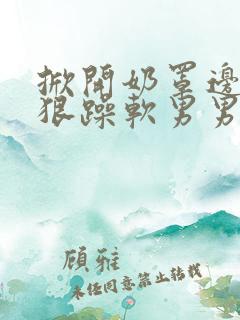 掀開奶罩邊
狠躁軟男男
顾雅
未经同意禁止转载